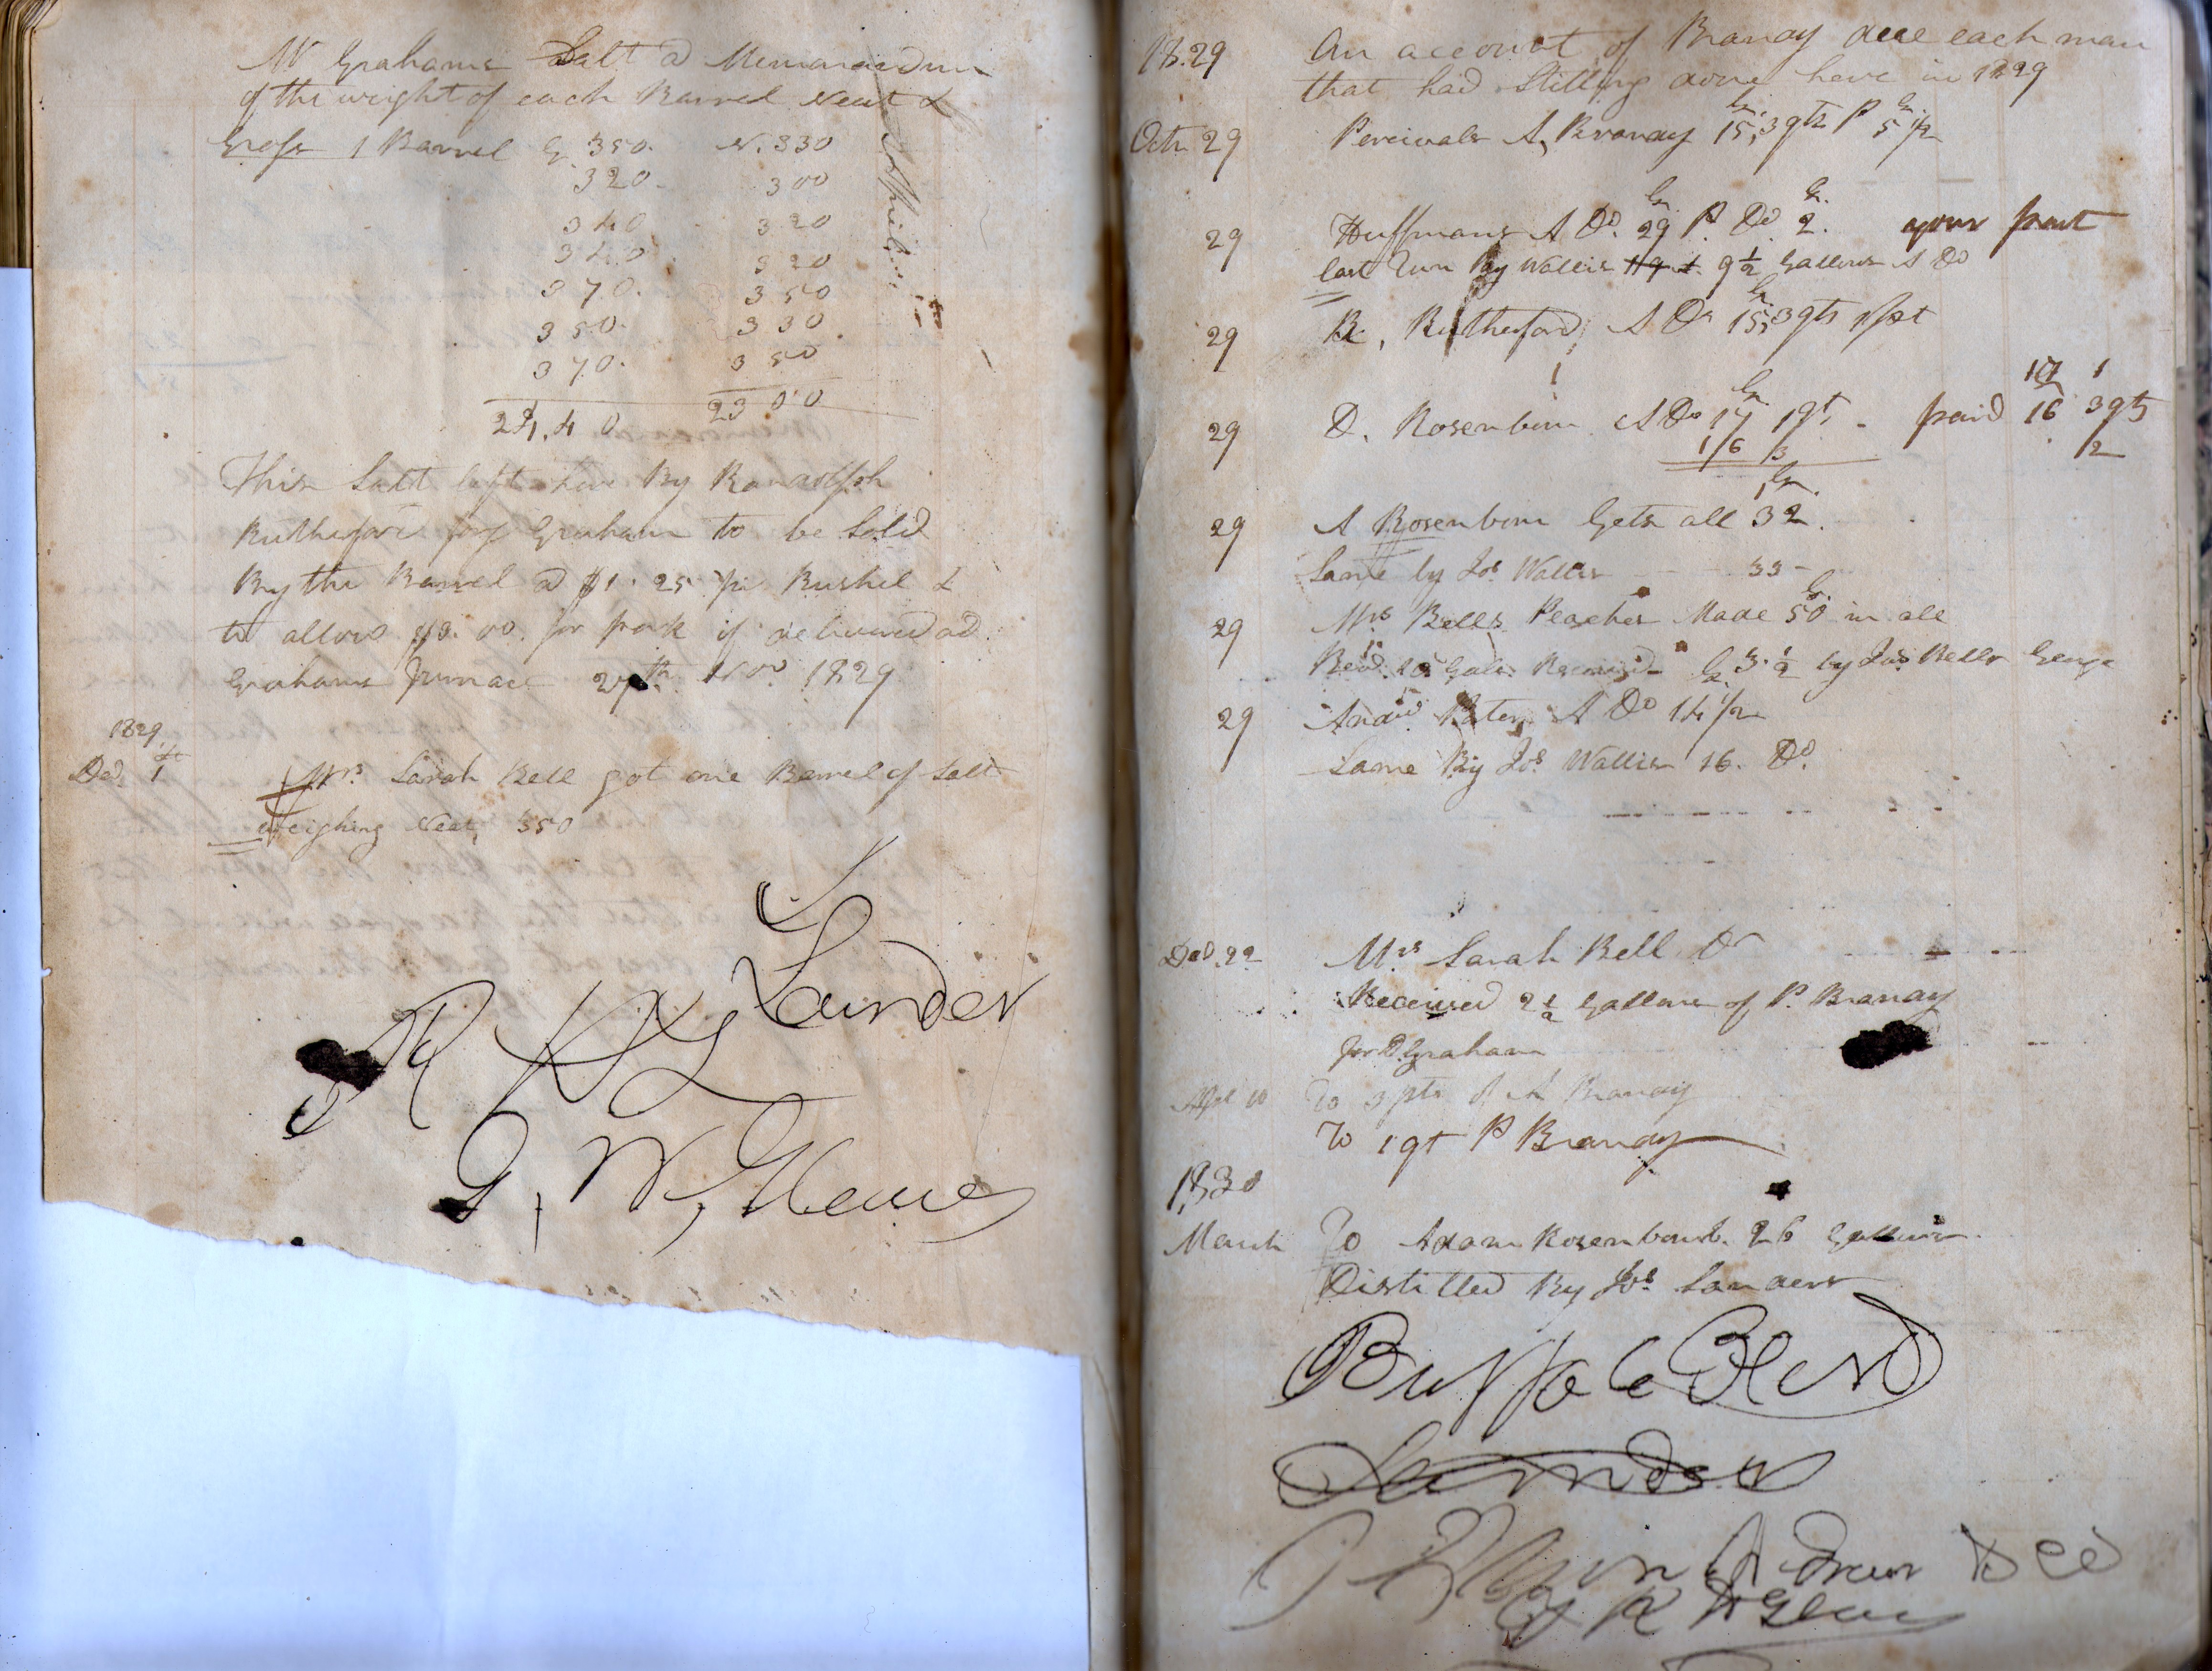 Mr Grahams Salt a Memorandum
of the weight of each Barrel Neat &
Gross 1 Barrel G. 350. N. 330
320. 300
340. 320
340. 320
370. 350
350. 330
370. 350
2440 2300
This Salt left here By Randolph
Rutheford for Graham to be Sold
By the Barrel a $1.25 pr Bushel &
to allow $3.00 for pork if delivered ad
Grahams Furnace 27th Nov 1829
1829
Dec 1st Mrs Sarah Bell got one Barrel of Salt
weighing Neat, 350
Sander
R
G, W,
1829 An account of Brandy each man
that had Stilling done here in 1829
Octr 29 Percivals A, Brandy 15,3 qts P 5 1/2
29 Huffmans A Do. 29 P. Do 2. your part
last Run By Wallis 9 1/2 Gallons A Do
29 R, Rutheford, A Do 15,3 qts 1 pt
29 D. Rosenbom A Do 17 1 qt - paid 16 3 qts
16 3 1/2
29 A Rosenbom Gets all 32.
Same by Jos Wallis 33 -
29 Mrs Bells Peaches Made 50 in all
Gals. Received G 3 1/2 by Jas Bells George
29 Andw A Do 14 1/2
Same By Jos Wallis 16. Do.
Decr. 22 Mrs Sarah Bell Dr
Received 2 1/2 Gallons of P. Brandy
for D Graham
Apl 10 To 3 pts of A Brandy
To 1 qt P Brandy
1830
March To Adam Rosenboom. 26 Gallons.
Distilled By Jos Sanders
Buffalo
Sander